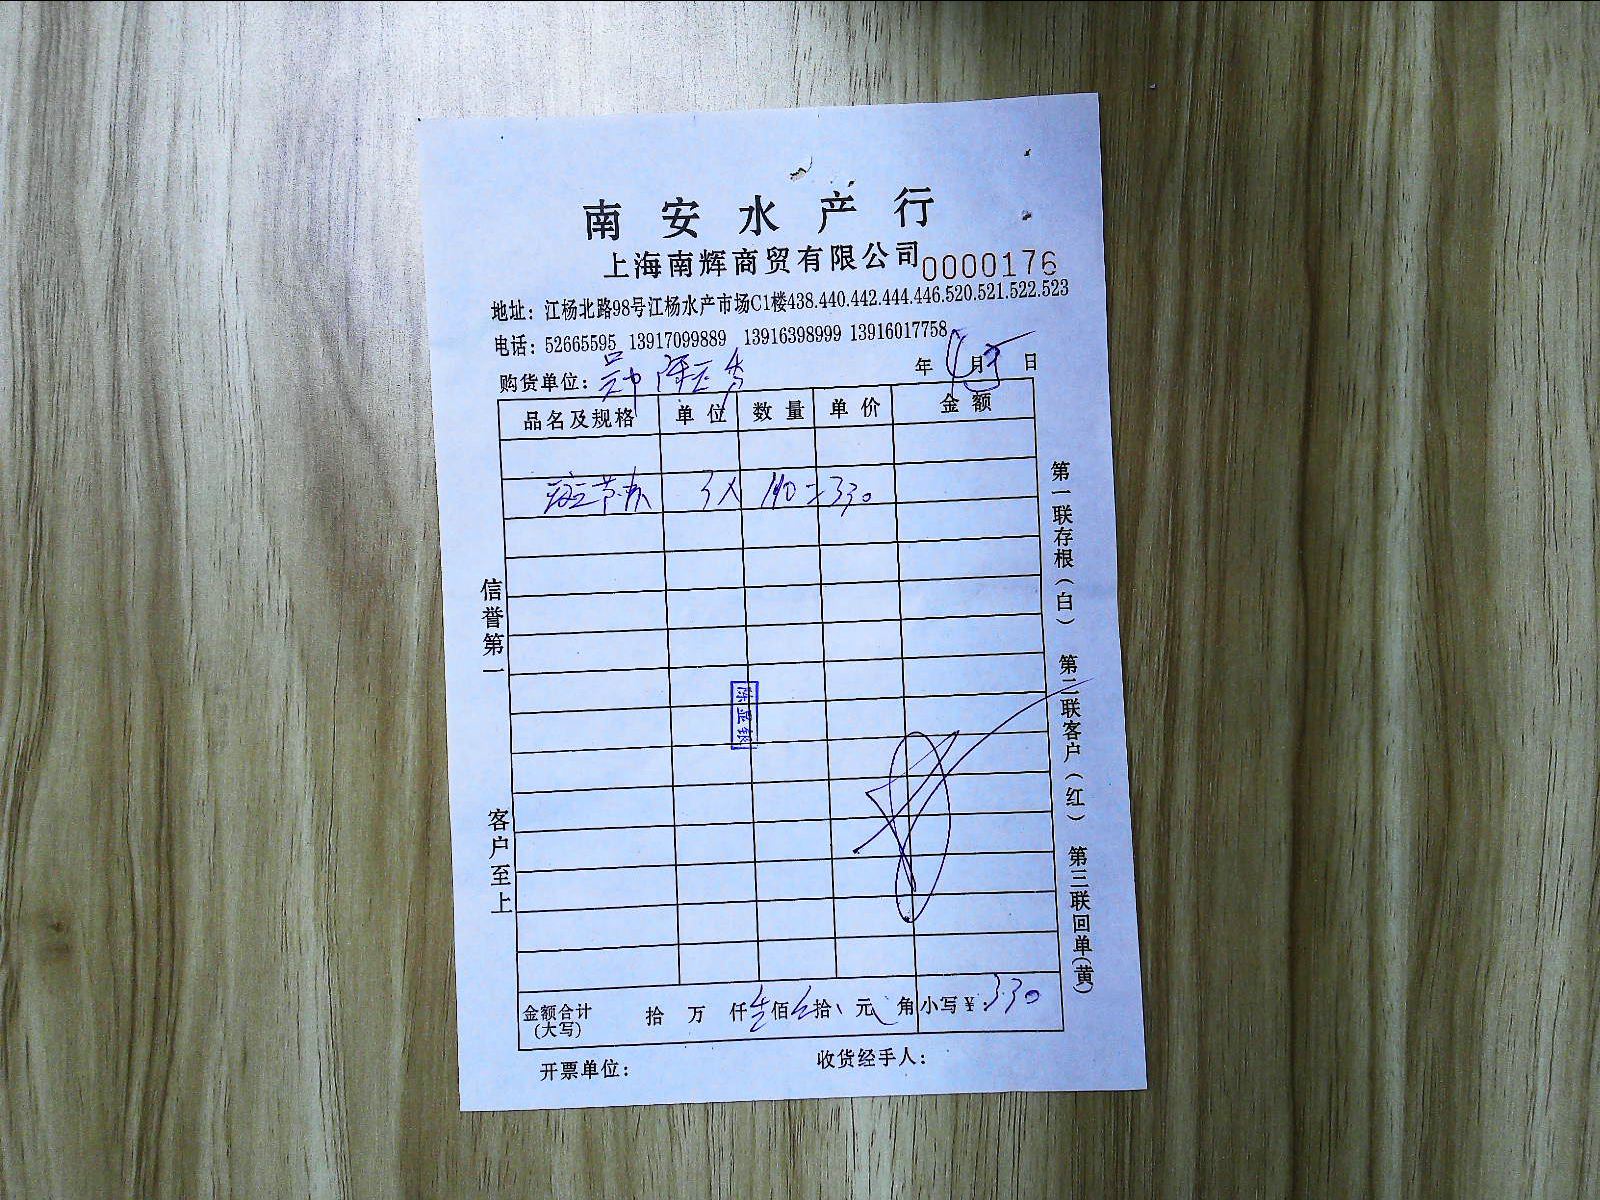 南安水产行
上海南辉商贸有限公司 0000176
地址：江杨北路98号江杨水产市场C1楼438.440.442.444.446.520.521.522.523
电话：52665595 13917099889 13916398999 13916017758
购货单位： 年 月 日
品名及规格 单位 数量 单价 金额
斑节 3X =330
信誉第一
客户至上
第一联存根（白） 第二联客户（红） 第三联回单（黄）
金额合计（大写） 拾 万 仟 佰 拾 元 角 小写￥：330
开票单位： 收货经手人：